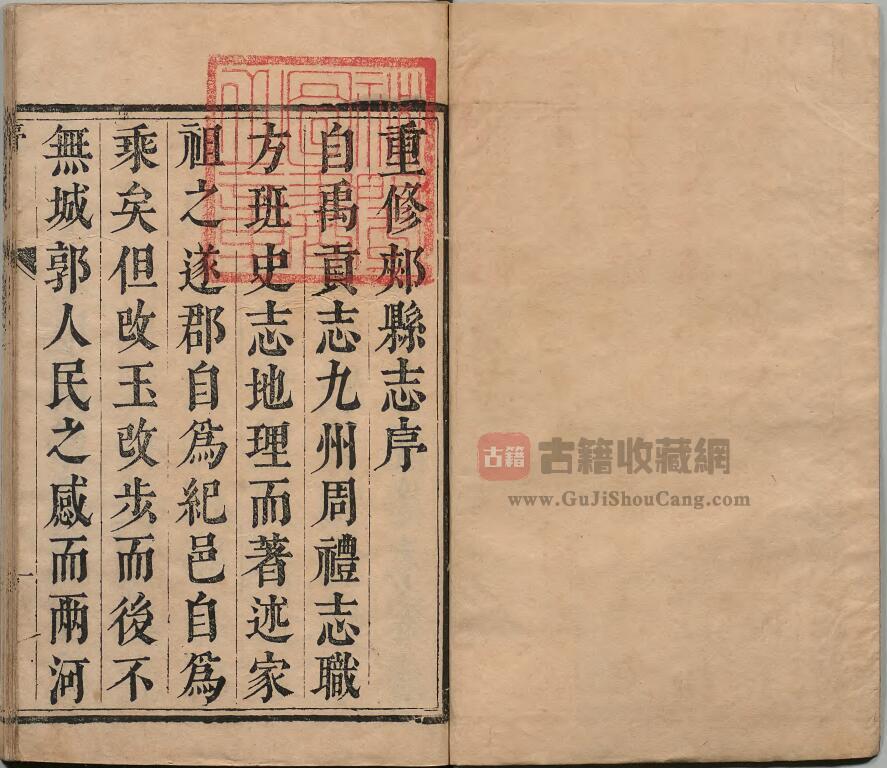 重修郟縣志序
自禹貢志九州周禮志職
方班史志地理而著述家
祖之遂郡自爲紀邑自爲
乘矣但改玉改步而後不
無城郭人民之感而兩河
古籍 古籍收藏網
www.GuJiShouCang.com